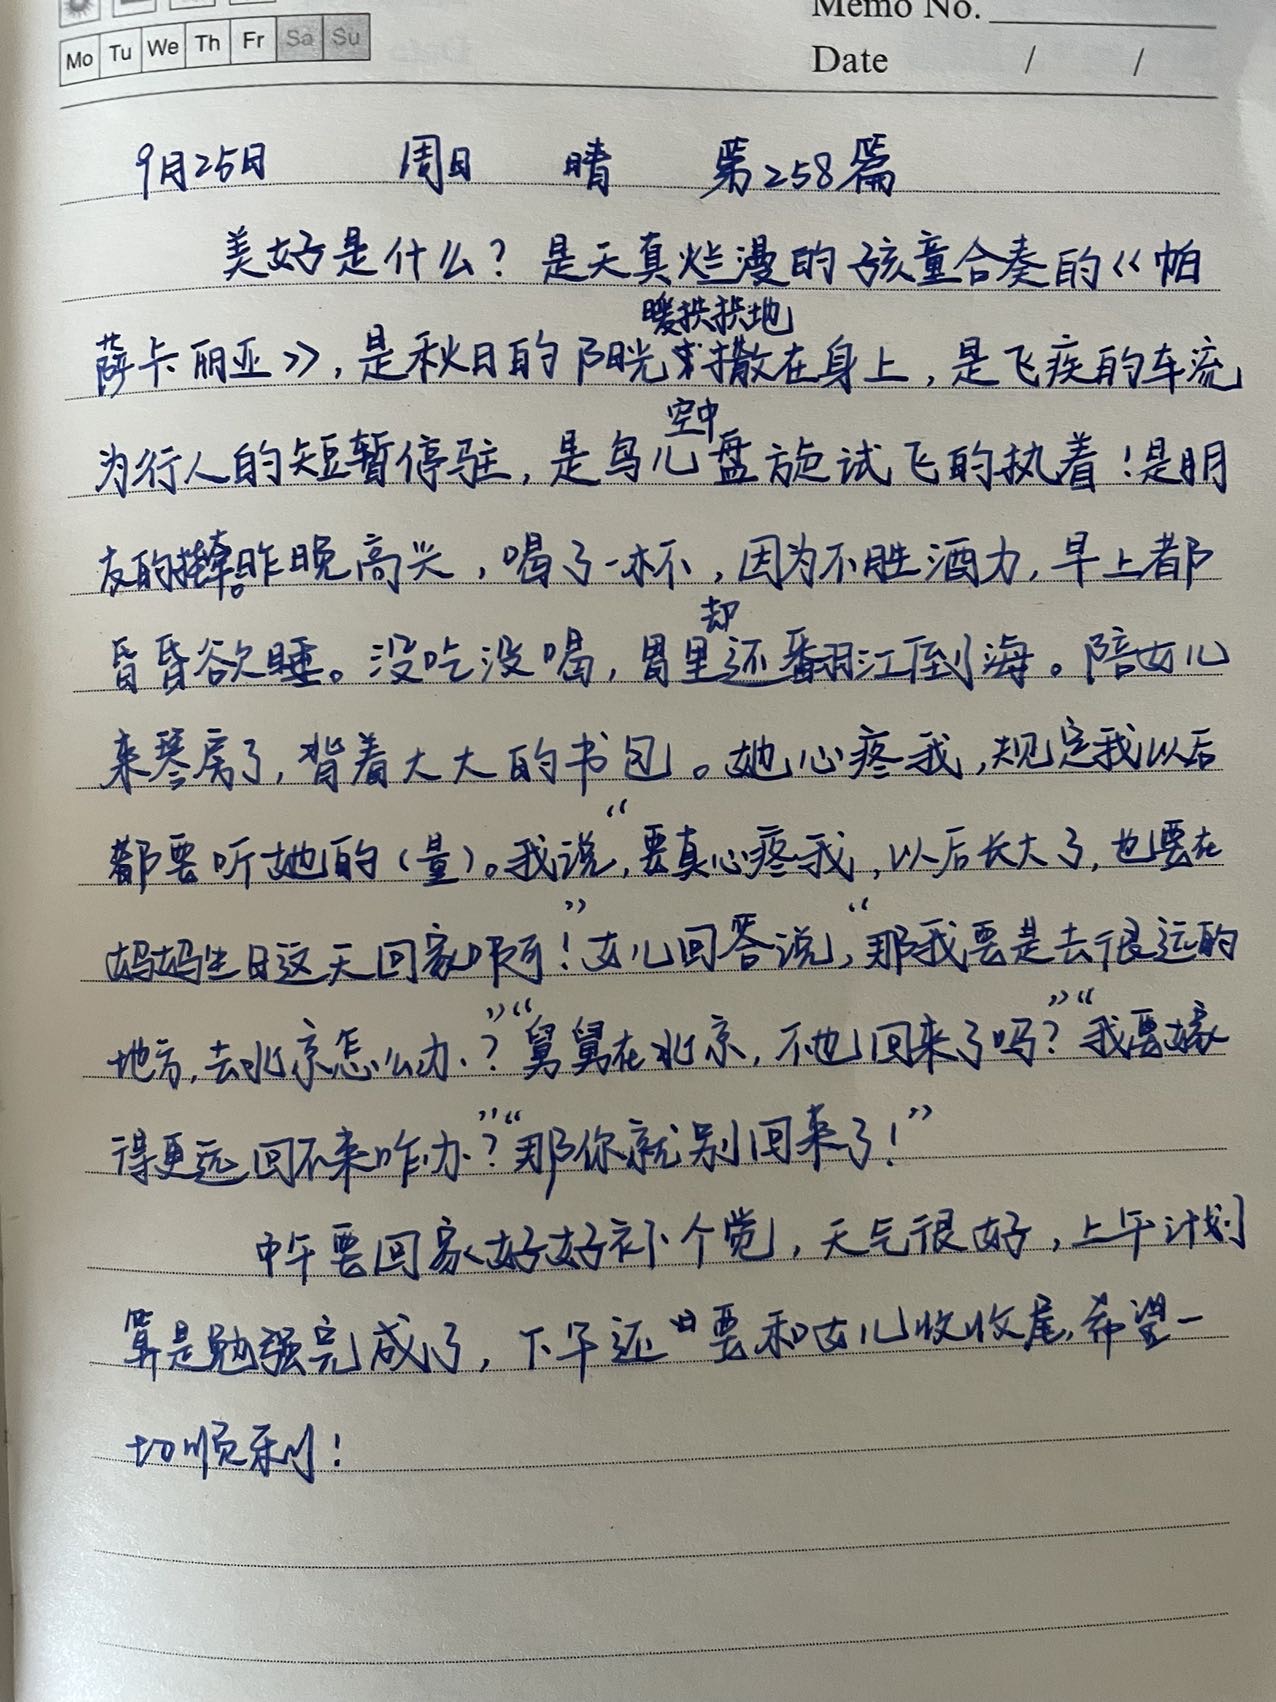 Memo No.
Mo Tu We Th Fr Sa Su
Date / /
9月25日 周日 晴 第258篇
美好是什么？是天真烂漫的孩童合奏的《帕
暖扶扶地
萨卡丽亚》，是秋日的阳光撒在身上，是飞疾的车流
空中
为行人的短暂停驻，是鸟儿盘旋试飞的执着！是朋
友的 昨晚高兴，喝了一杯，因为不胜酒力，早上都
却
昏昏欲睡。没吃没喝，胃里还翻江倒海。陪女儿
来琴房了，背着大大的书包。她心疼我，规定我以后
都要听她的（量）。我说，“要真心疼我，以后长大了，也要在
妈妈生日这天回家啊！”女儿回答说，“那我要是去很远的
地方，去北京怎么办？”“舅舅在北京，不也回来了吗？”“我要嫁
得更远回不来咋办？”“那你就别回来了！”
中午要回家好好补个觉，天气很好，上午计划
算是勉强完成了，下午还要和女儿收收尾，希望一
切顺利！